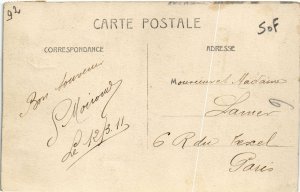 92
CARTE POSTALE
50F
CORRESPONDANCE
ADRESSE
Bon souvenir
Monsieur et Madame
Le 12/3.11
6 R du Texel
Paris